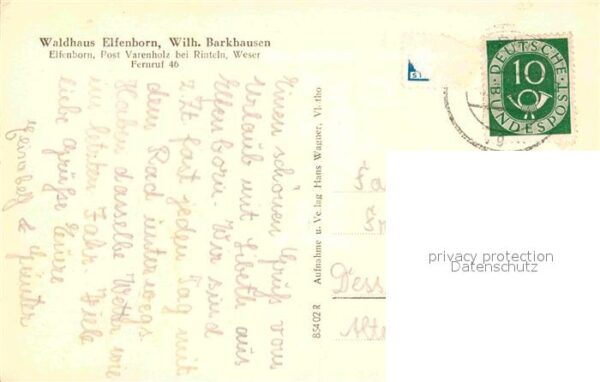 Waldhaus Elfenborn, Wilh. Barkhausen
Elfenborn, Post Varenholz bei Rinteln, Weser
Fernruf 46
Einen schönen Gruß vom
Urlaub mit Libeth aus
Elfenborn. Wir sind
z. Zt. fast jeden Tag mit
dem Rad unterwegs.
Haben dasselbe Wetter wie
im letzten Jahr. Viele
liebe Grüße Eure
& Günter
Aufnahme u. Verlag Hans Wagner, Vlotho
854 02 R
51
DEUTSCHE BUNDESPOST
10
Dess
privacy protection
Datenschutz